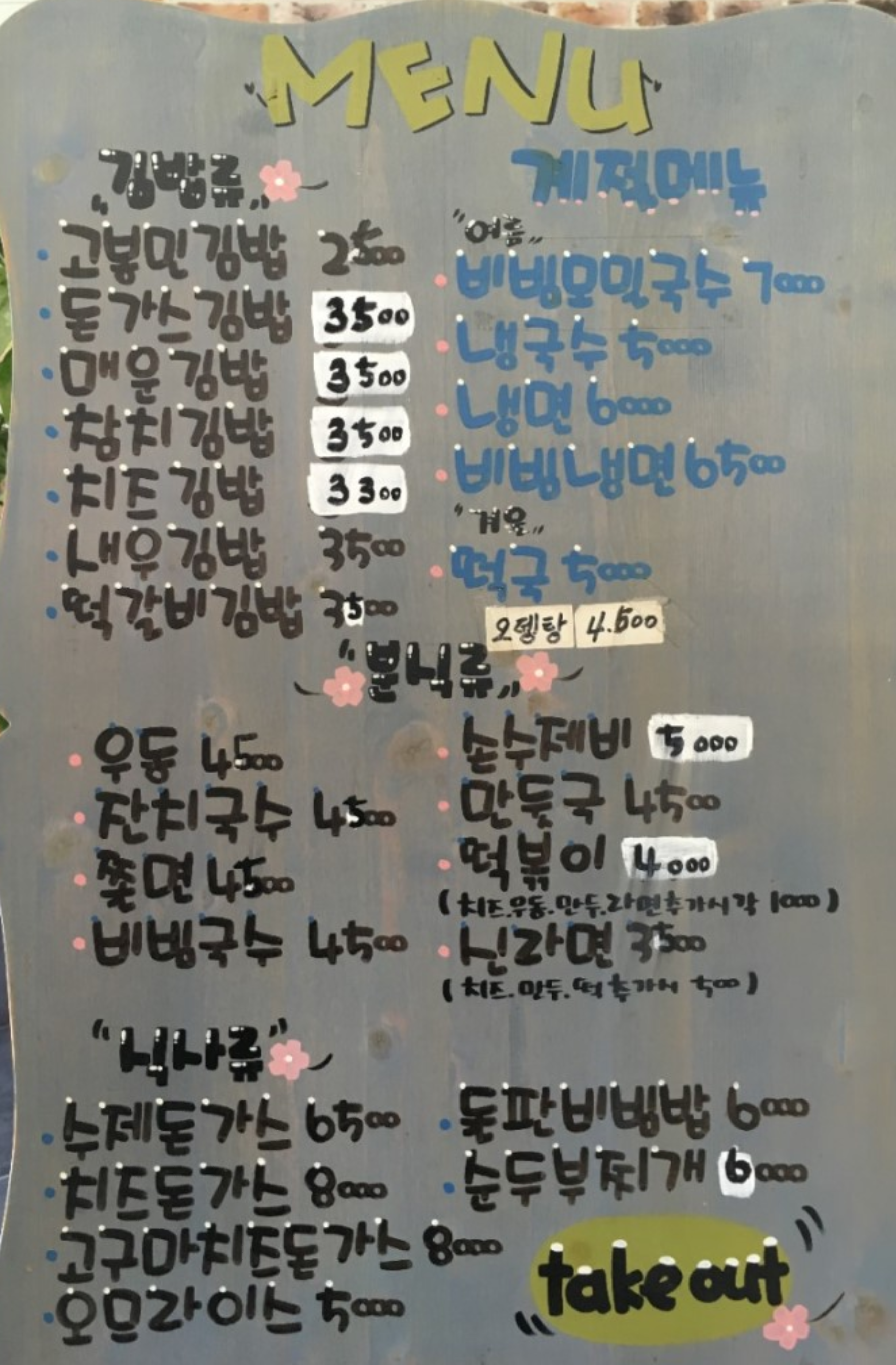 MENU
"김밥류"
고봉민김밥 2500
돈가스김밥 3500
매운김밥 3500
참치김밥 3500
치즈김밥 3300
새우김밥 3500
떡갈비김밥 3500
계절메뉴
"여름"
비빔모밀국수 7000
냉국수 5000
냉면 6000
비빔냉면 6500
"겨울"
떡국 5000
오뎅탕 4.500
"분식류"
우동 4500
잔치국수 4500
쫄면 4500
비빔국수 4500
손수제비 5000
만둣국 4500
떡볶이 4000
(치즈.우동.만두.라면추가시각 1000)
신라면 3500
(치즈.만두.떡추가시 500)
"식사류"
수제돈가스 6500
치즈돈가스 8000
고구마치즈돈가스 8000
오므라이스 5000
돌판비빔밥 6000
순두부찌개 6000
take out